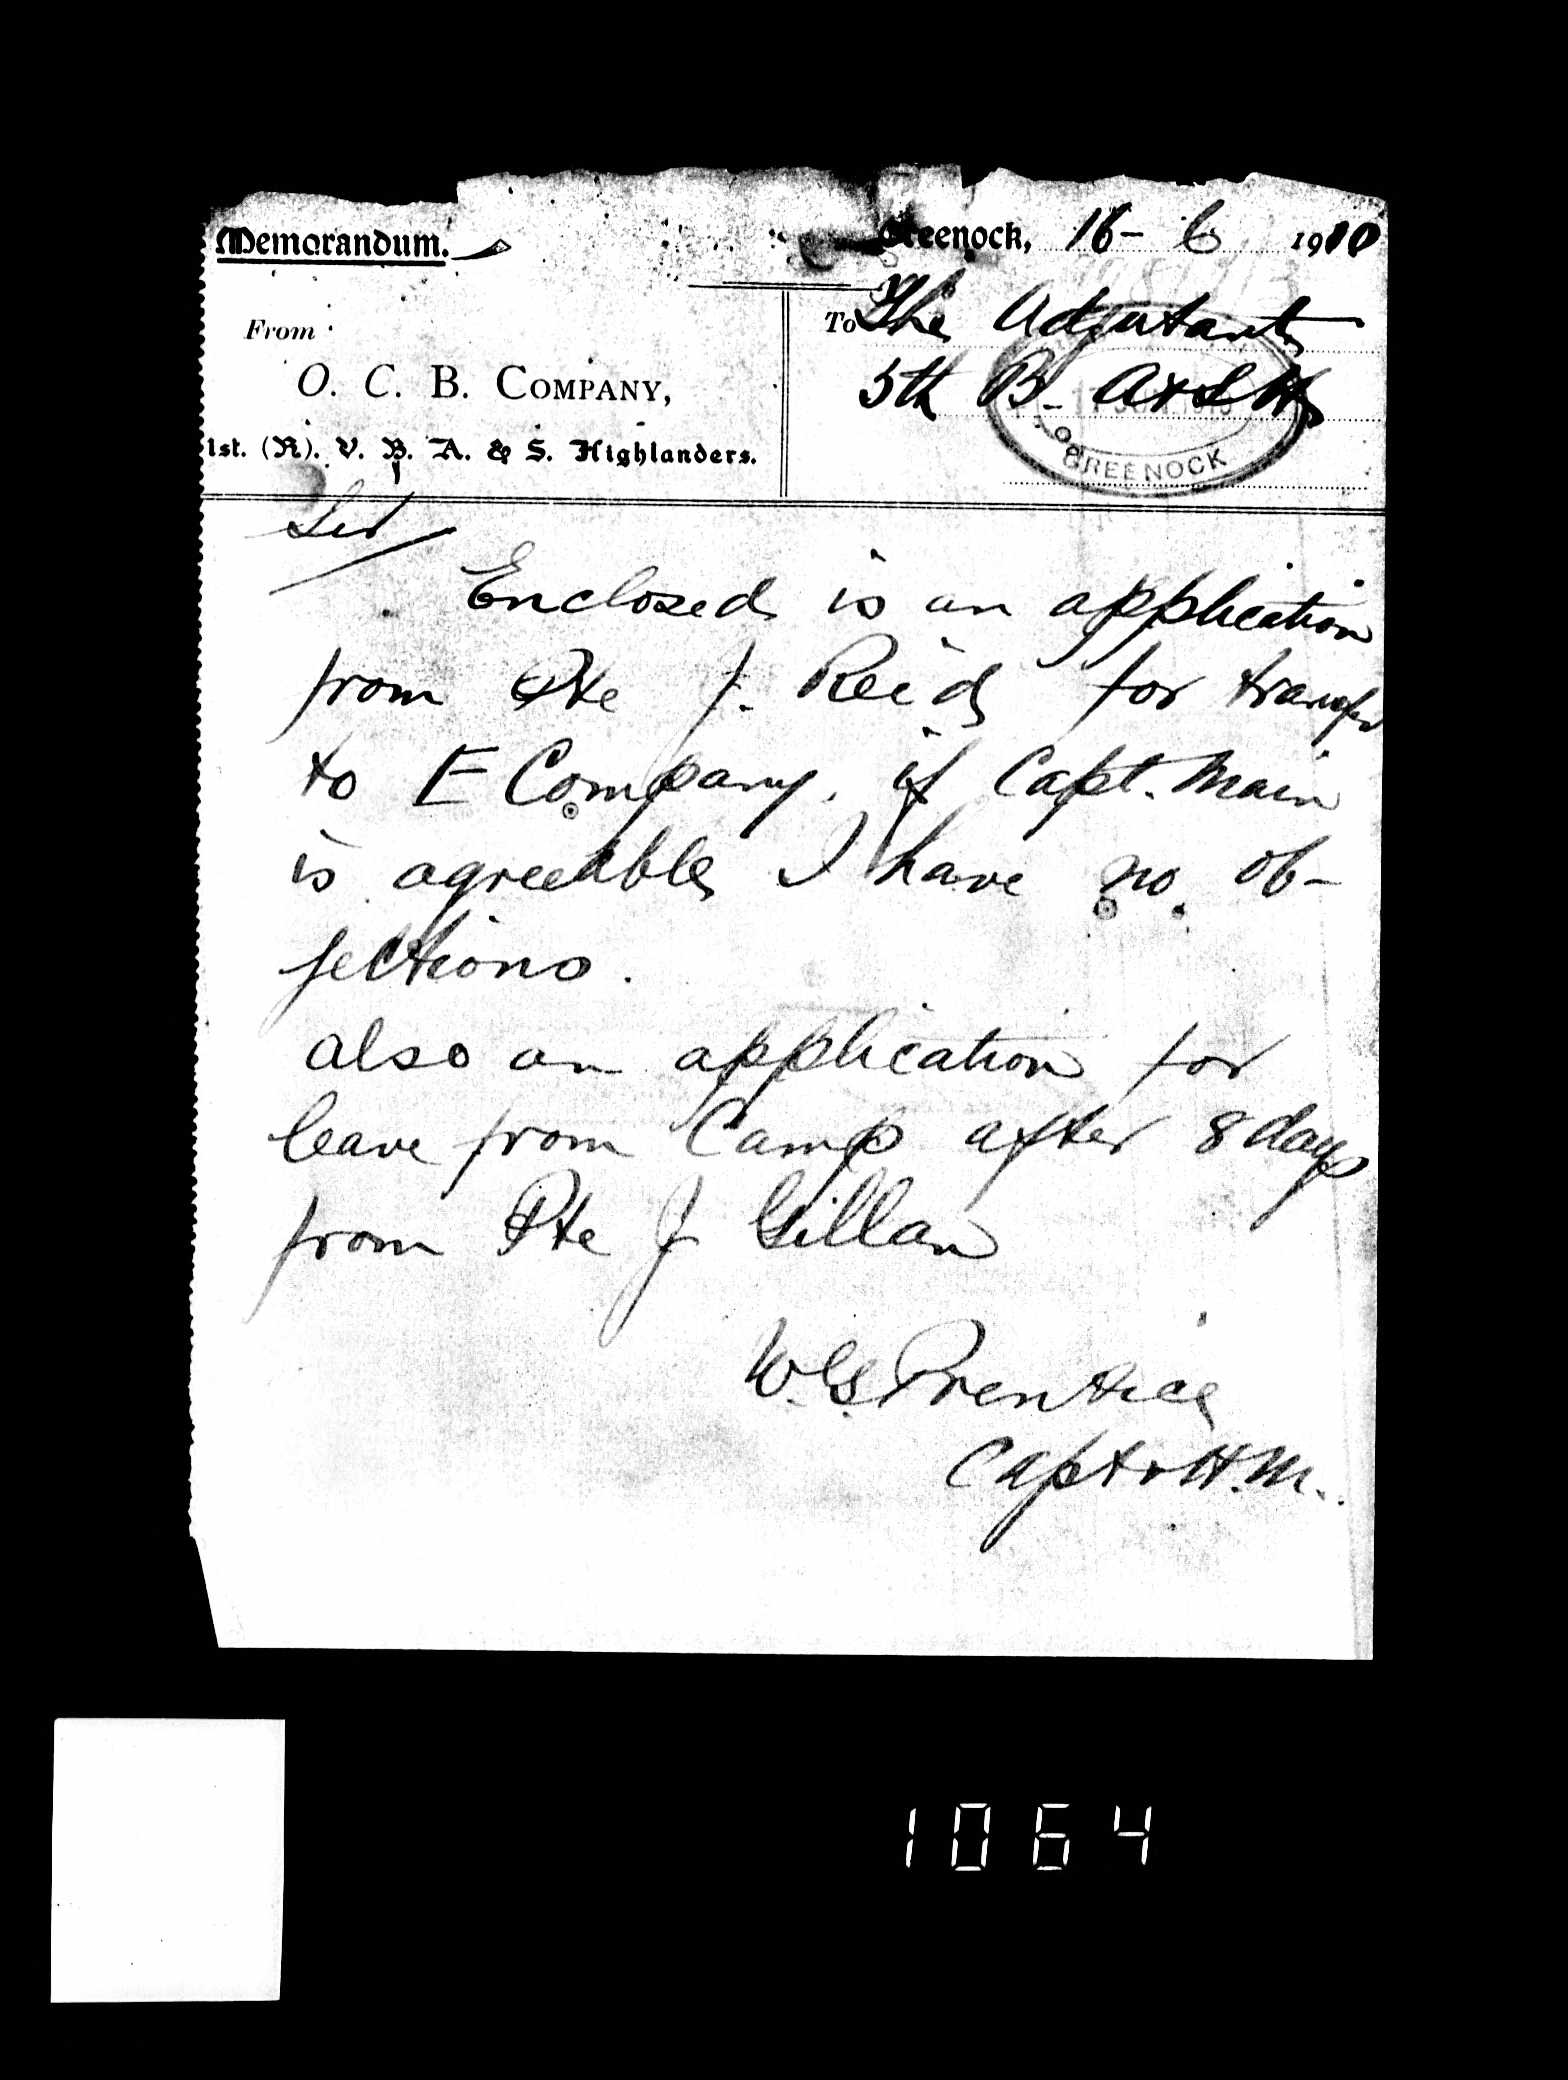 Memorandum.
Greenock, 16-6 1910
From
O. C. B. Company,
1st. (R). V. B. A. & S. Highlanders.
To The Adjutant
5th B. A & S H
GREENOCK
Sir
Enclosed is an application
from Pte J. Reid for transfer
to E Company, if Capt. Main
is agreeable I have no ob-
jections.
also an application for
leave from Camp after 8 days
from Pte J Gillan
W. G. Prentice
Capt & H.M.
1064